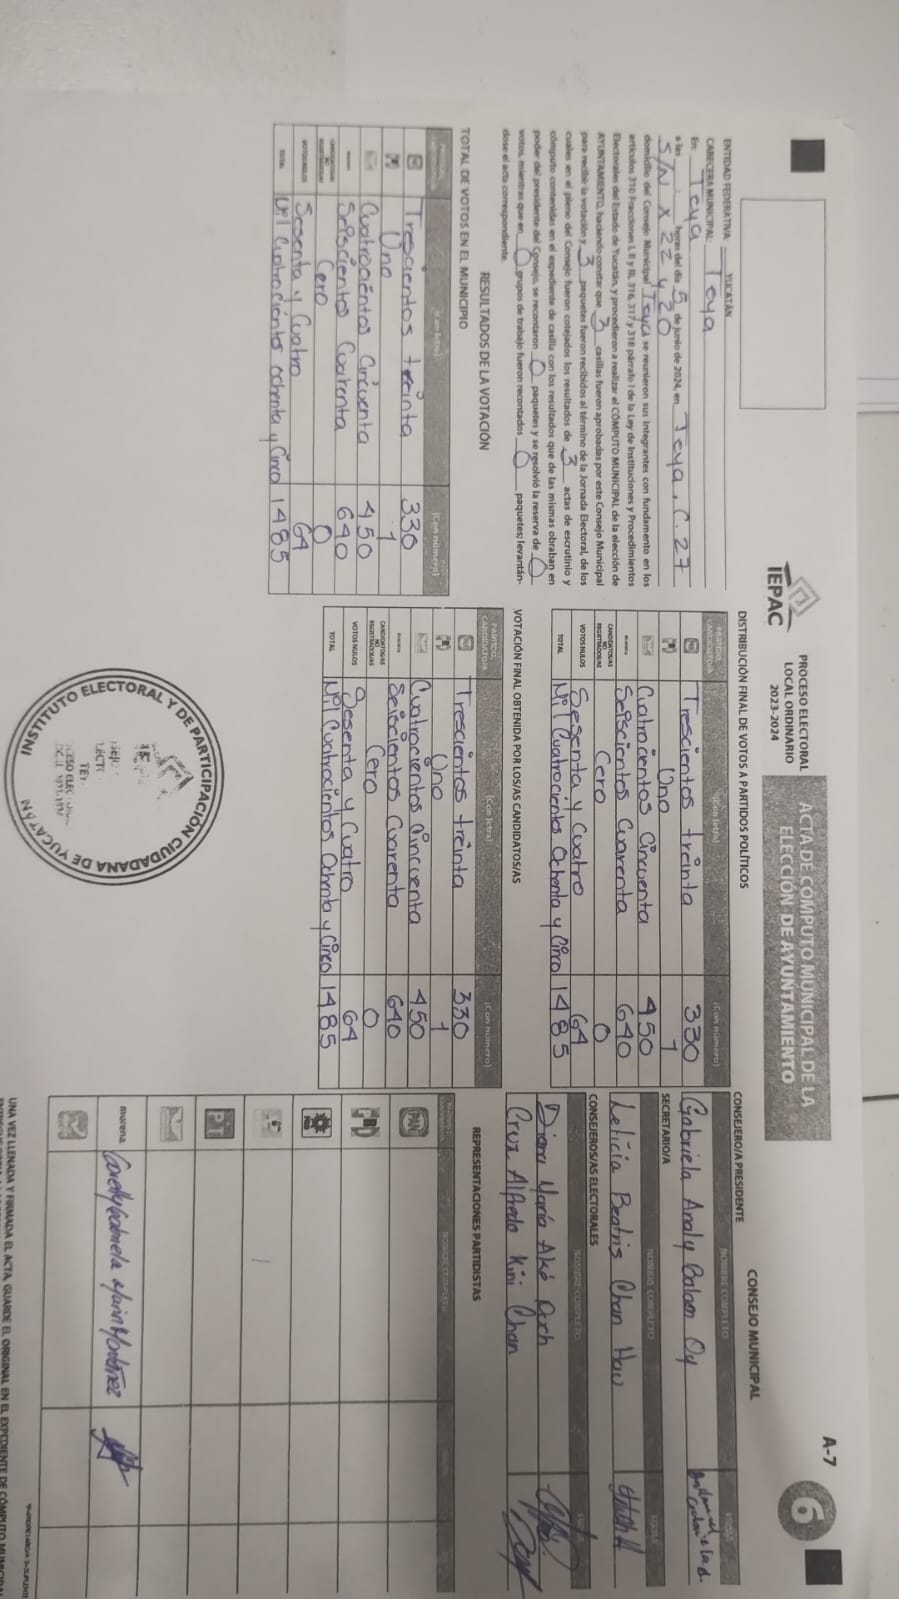 IEPAC
PROCESO ELECTORAL
LOCAL ORDINARIO
2023-2024
ACTA DE CÓMPUTO MUNICIPAL DE LA
ELECCIÓN DE AYUNTAMIENTO
A-7
6
ENTIDAD FEDERATIVA: YUCATÁN
CABECERA MUNICIPAL: Teya
En: Teya
a las horas del día 5 de junio de 2024, en Teya, C. 27
S/N x 22 y 20
domicilio del Consejo Municipal Teya se reunieron sus integrantes con fundamento en los
artículos 310 Fracciones I, II y III, 316, 317 y 318 párrafo I de la Ley de Instituciones y Procedimientos
Electorales del Estado de Yucatán, y procedieron a realizar el CÓMPUTO MUNICIPAL de la elección de
AYUNTAMIENTO, haciendo constar que 3 casillas fueron aprobadas por este Consejo Municipal
para recibir la votación y 3 paquetes fueron recibidos al término de la Jornada Electoral, de los
cuales en el pleno del Consejo fueron cotejados los resultados de 3 actas de escrutinio y
cómputo contenidas en el expediente de casilla con los resultados que de las mismas obraban en
poder del presidente del Consejo, se recontaron 0 paquetes y se resolvió la reserva de 0
votos, mientras que en 0 grupos de trabajo fueron recontados 0 paquetes; levantán-
dose el acta correspondiente.
RESULTADOS DE LA VOTACIÓN
TOTAL DE VOTOS EN EL MUNICIPIO
(Con número)
Trescientos treinta 330
Uno 1
Cuatrocientos Cincuenta 450
Seiscientos Cuarenta 640
CANDIDATOS/AS NO REGISTRADOS/AS Cero 0
VOTOS NULOS Sesenta y Cuatro 64
TOTAL Mil Cuatrocientos ochenta y Cinco 1485
DISTRIBUCIÓN FINAL DE VOTOS A PARTIDOS POLÍTICOS
PARTIDO, CANDIDATO/A (Con letra) (Con número)
Trescientos treinta 330
Uno 1
Cuatrocientos Cincuenta 450
Seiscientos Cuarenta 640
CANDIDATOS/AS NO REGISTRADOS/AS Cero 0
VOTOS NULOS Sesenta y Cuatro 64
TOTAL Mil Cuatrocientos Ochenta y Cinco 1485
VOTACIÓN FINAL OBTENIDA POR LOS/AS CANDIDATOS/AS
PARTIDO, CANDIDATO/A (Con letra) (Con número)
Trescientos treinta 330
Uno 1
Cuatrocientos Cincuenta 450
Seiscientos Cuarenta 640
CANDIDATOS/AS NO REGISTRADOS/AS Cero 0
VOTOS NULOS Sesenta y Cuatro 64
TOTAL Mil Cuatrocientos Ochenta y Cinco 1485
INSTITUTO ELECTORAL Y DE PARTICIPACIÓN CIUDADANA DE YUCATÁN
CONSEJO MUNICIPAL
CONSEJERO/A PRESIDENTE
NOMBRE COMPLETO
Gabriela Analy
SECRETARIO/A
NOMBRE COMPLETO
Leticia Beatris Chan Hau
CONSEJEROS/AS ELECTORALES
NOMBRE COMPLETO
Diana María Aké
Cruz Alfredo Kini Chan
REPRESENTACIONES PARTIDISTAS
PAN
PRI
PRD
PT
morena
UNA VEZ LLENADA Y FIRMADA EL ACTA, GUARDE EL ORIGINAL EN EL EXPEDIENTE DE CÓMPUTO